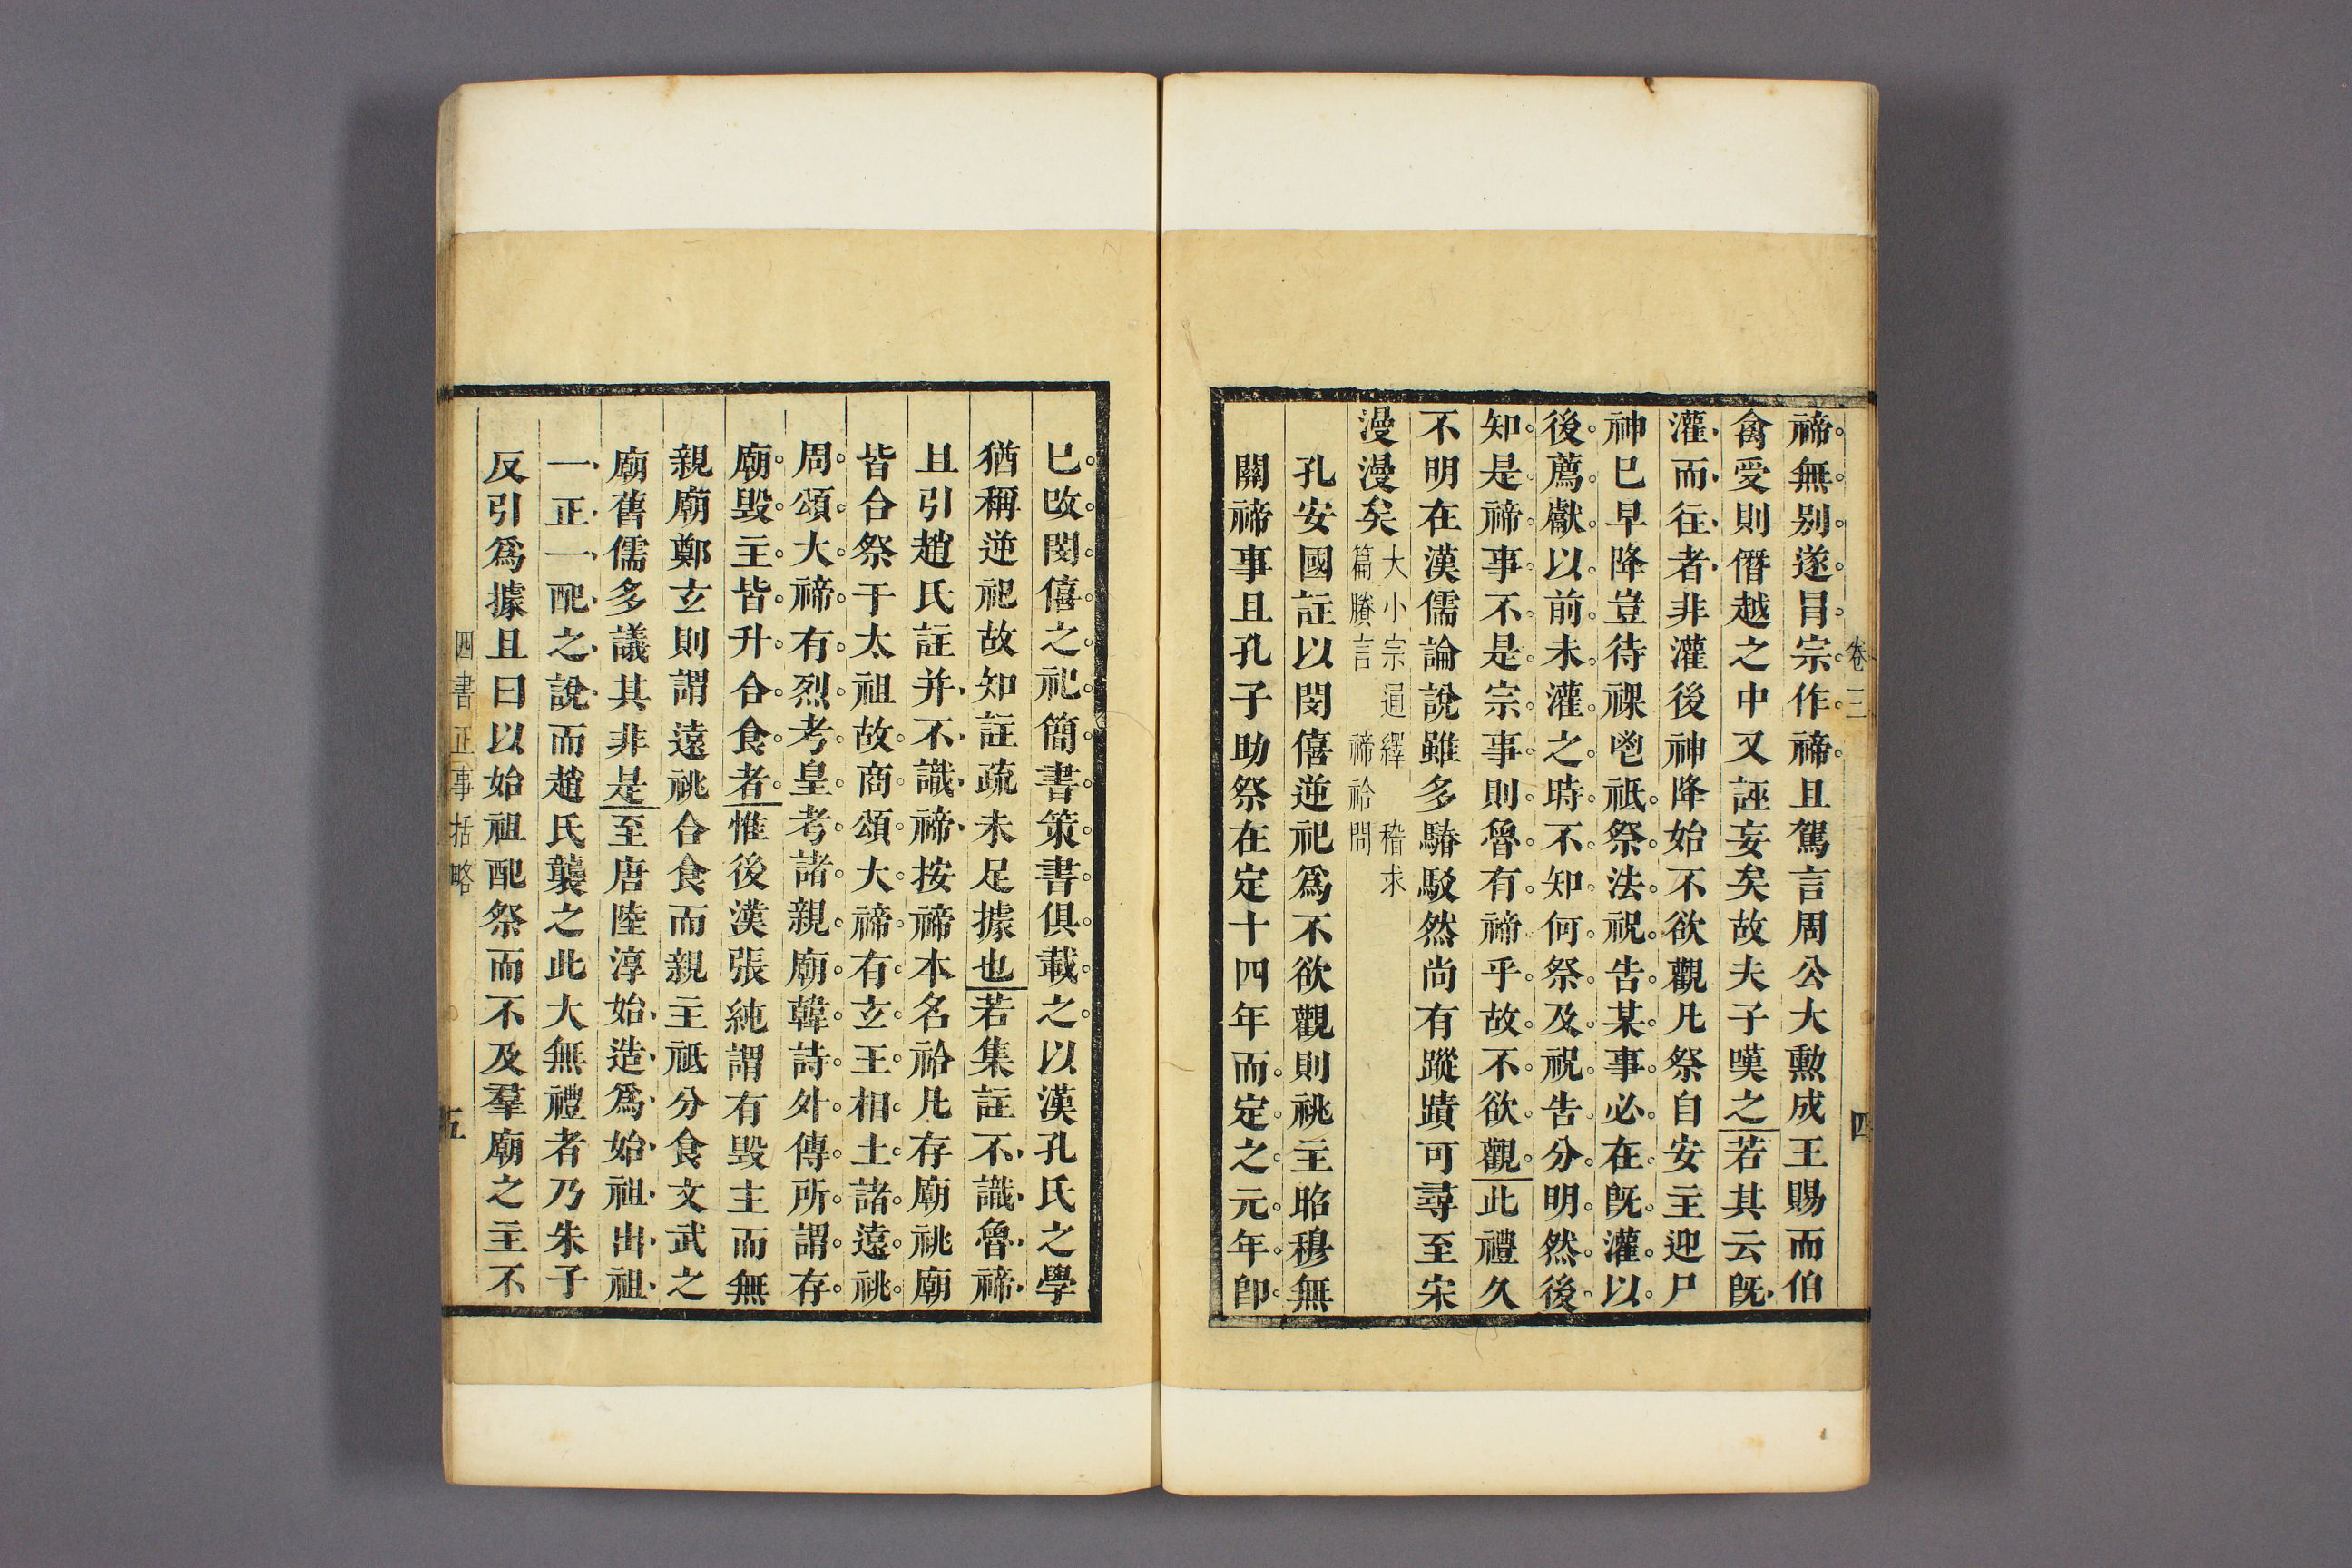 卷三
四
禘無別遂冒宗作禘且駕言周公大勲成王賜而伯
禽受則僭越之中又誣妄矣故夫子嘆之若其云旣
灌而往者非灌後神降始不欲觀凡祭自安主迎尸
神巳早降豈待祼鬯祇祭法祝告某事必在旣灌以
後薦獻以前未灌之時不知何祭及祝告分明然後
知是禘事不是宗事則魯有禘乎故不欲觀此禮久
不明在漢儒論說雖多駳駁然尚有蹤蹟可尋至宋
漫漫矣
大小宗通繹 稽求
篇賸言 禘祫問
孔安國註以閔僖逆祀爲不欲觀則祧主昭穆無
關禘事且孔子助祭在定十四年而定之元年卽
巳改閔僖之祀簡書策書俱載之以漢孔氏之學
猶稱逆祀故知註疏未足據也若集註不識魯禘
且引趙氏註并不識禘按禘本名祫凡存廟祧廟
皆合祭于太祖故商頌大禘有玄王相土諸遠祧
周頌大禘有烈考皇考諸親廟韓詩外傳所謂存
廟毀主皆升合食者惟後漢張純謂有毀主而無
親廟鄭玄則謂遠祧合食而親主祇分食文武之
廟舊儒多議其非是至唐陸淳始造爲始祖出祖
一正一配之說而趙氏襲之此大無禮者乃朱子
反引爲據且曰以始祖配祭而不及羣廟之主不
四書正事括略
五